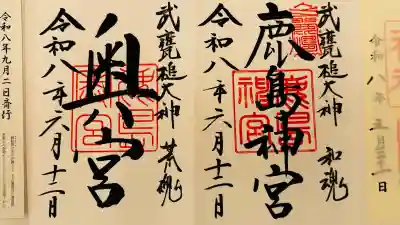 武甕槌大神 和魂
鹿島神宮
令和八年六月十二日
武甕槌大神 荒魂
奥宮
令和八年六月十二日
令和八年九月二日発行
令和八年